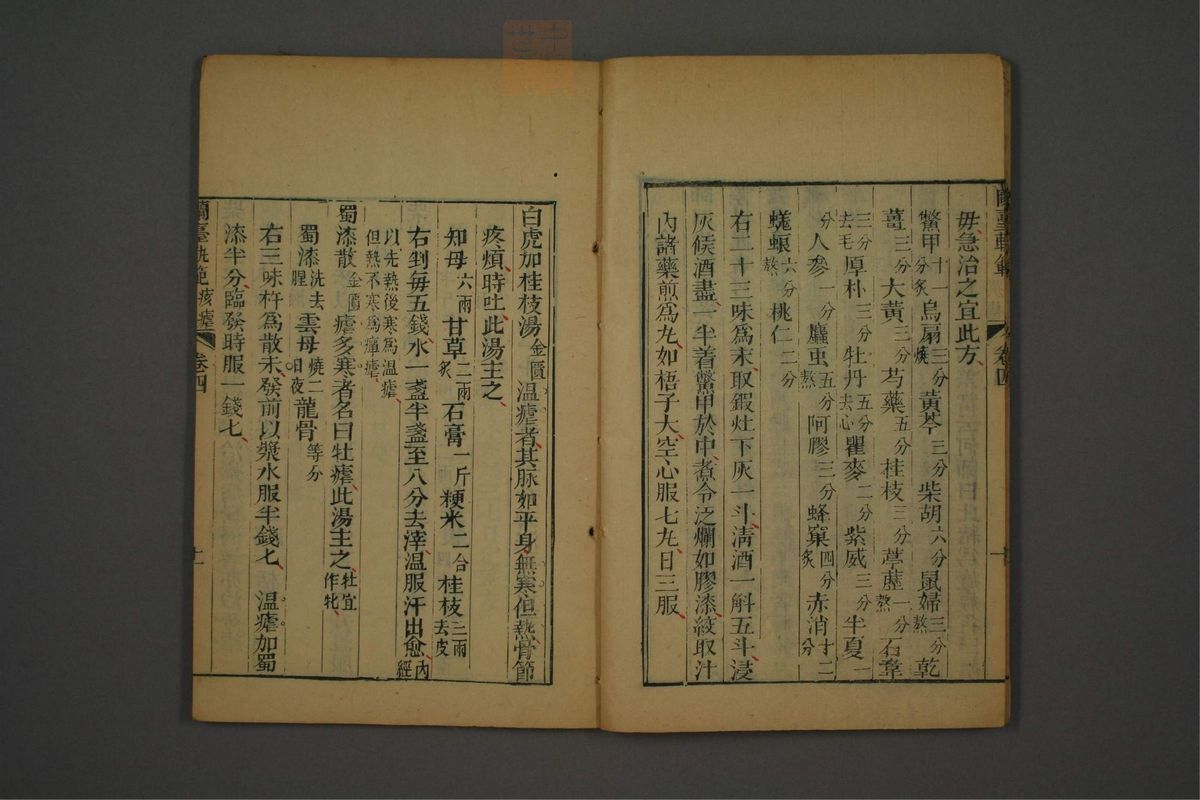 毋急治之宜此方
鱉甲十一分炙烏扇三分燒黃芩三分柴胡六分鼠婦三分熬乾
薑三分大黃三分芍藥五分桂枝三分葶藶一分熬石韋
三分去毛厚朴三分牡丹五分去心瞿麥二分紫威三分半夏一
分人參一分䗪虫五分熬阿膠三分蜂窠四分炙赤消十二分
蜣蜋六分熬桃仁二分
右二十三味為末取鍛灶下灰一斗清酒一斛五斗浸
灰候酒盡一半着鱉甲於中煮令泛爛如膠漆絞取汁
內諸藥煎為丸如梧子大空心服七丸日三服
卷四
白虎加桂枝湯金匱溫瘧者其脉如平身無寒但熱骨節
疼煩時吐此湯主之
知母六兩甘草二兩炙石膏一斤粳米二合桂枝三兩去皮
右剉每五錢水一盞半盞至八分去滓溫服汗出愈內經
以先熱後寒為溫瘧但熱不寒為癉瘧
蜀漆散金匱瘧多寒者名曰牡瘧此湯主之牡宜作牝
蜀漆洗去腥雲母燒二日夜龍骨等分
右三味杵為散未發前以漿水服半錢七溫瘧加蜀
漆半分臨發時服一錢七
蘭臺軌範痎瘧卷四